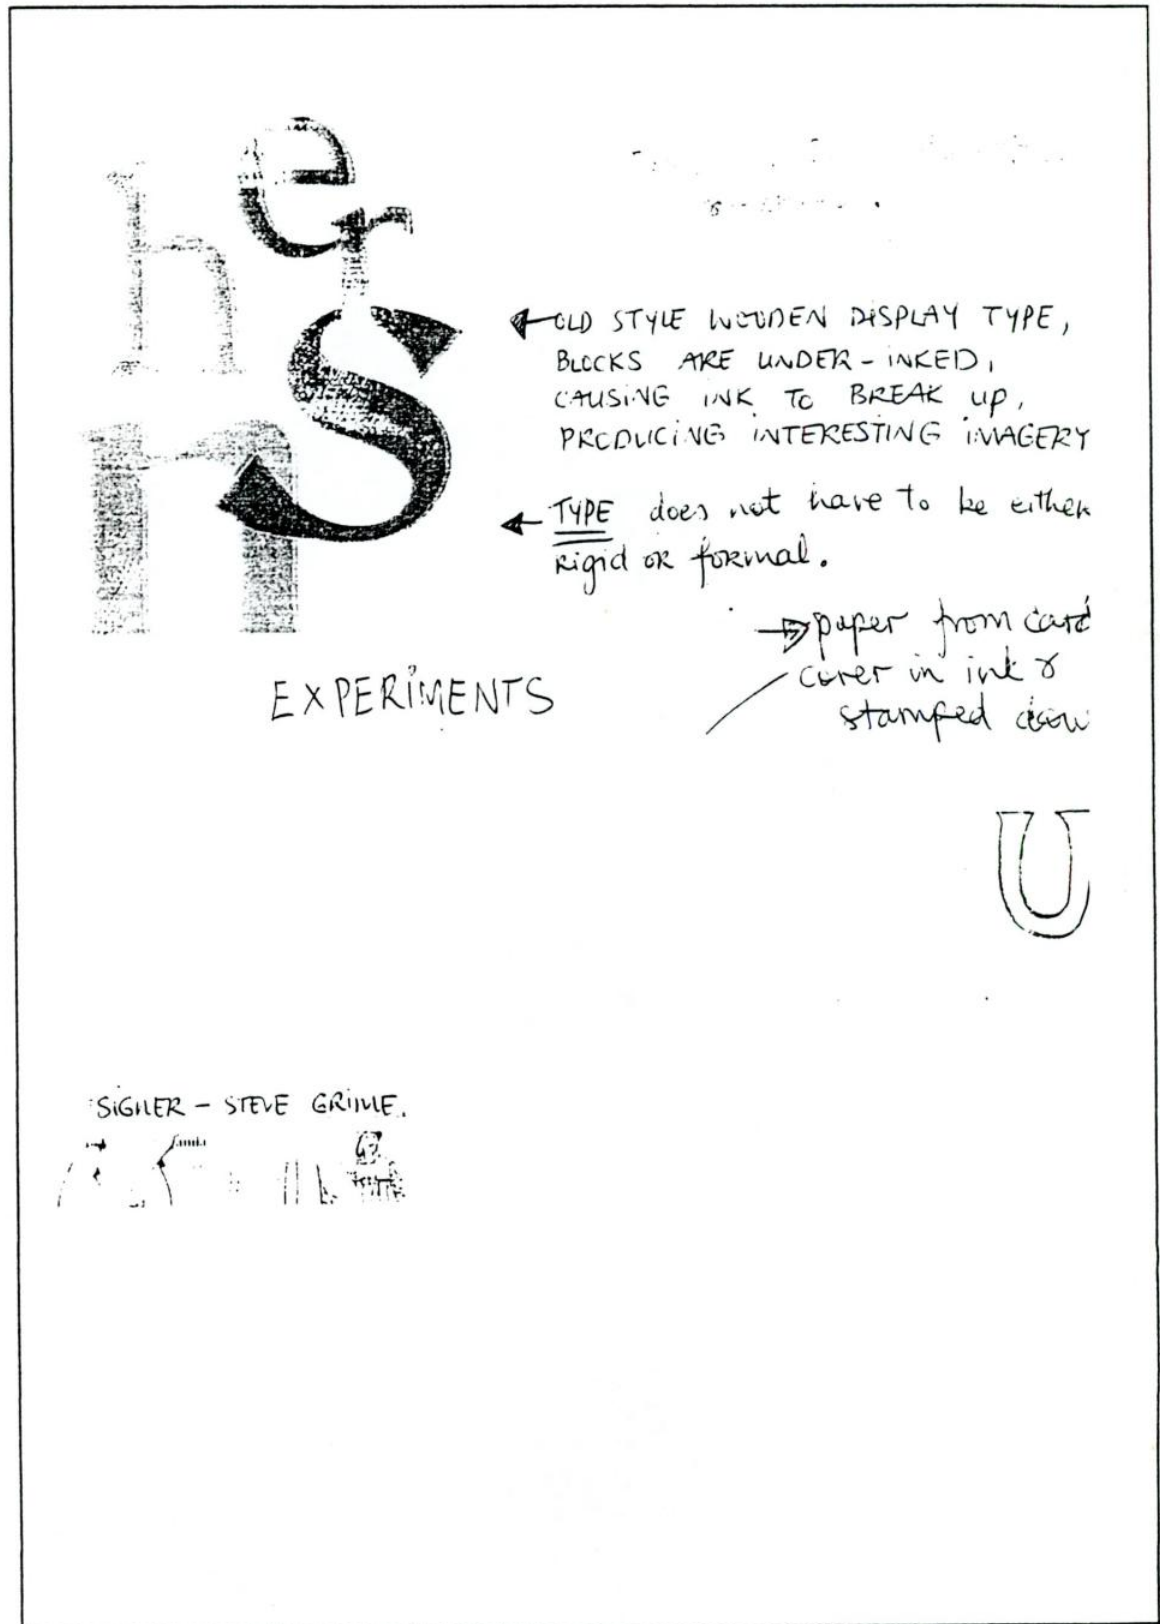 h e r
s
n
OLD STYLE WOODEN DISPLAY TYPE,
BLOCKS ARE UNDER-INKED,
CAUSING INK TO BREAK UP,
PRODUCING INTERESTING IMAGERY
TYPE does not have to be either
Rigid or formal.
paper from card
cover in ink &
stamped
EXPERIMENTS
U
SIGNER - STEVE GRIME.